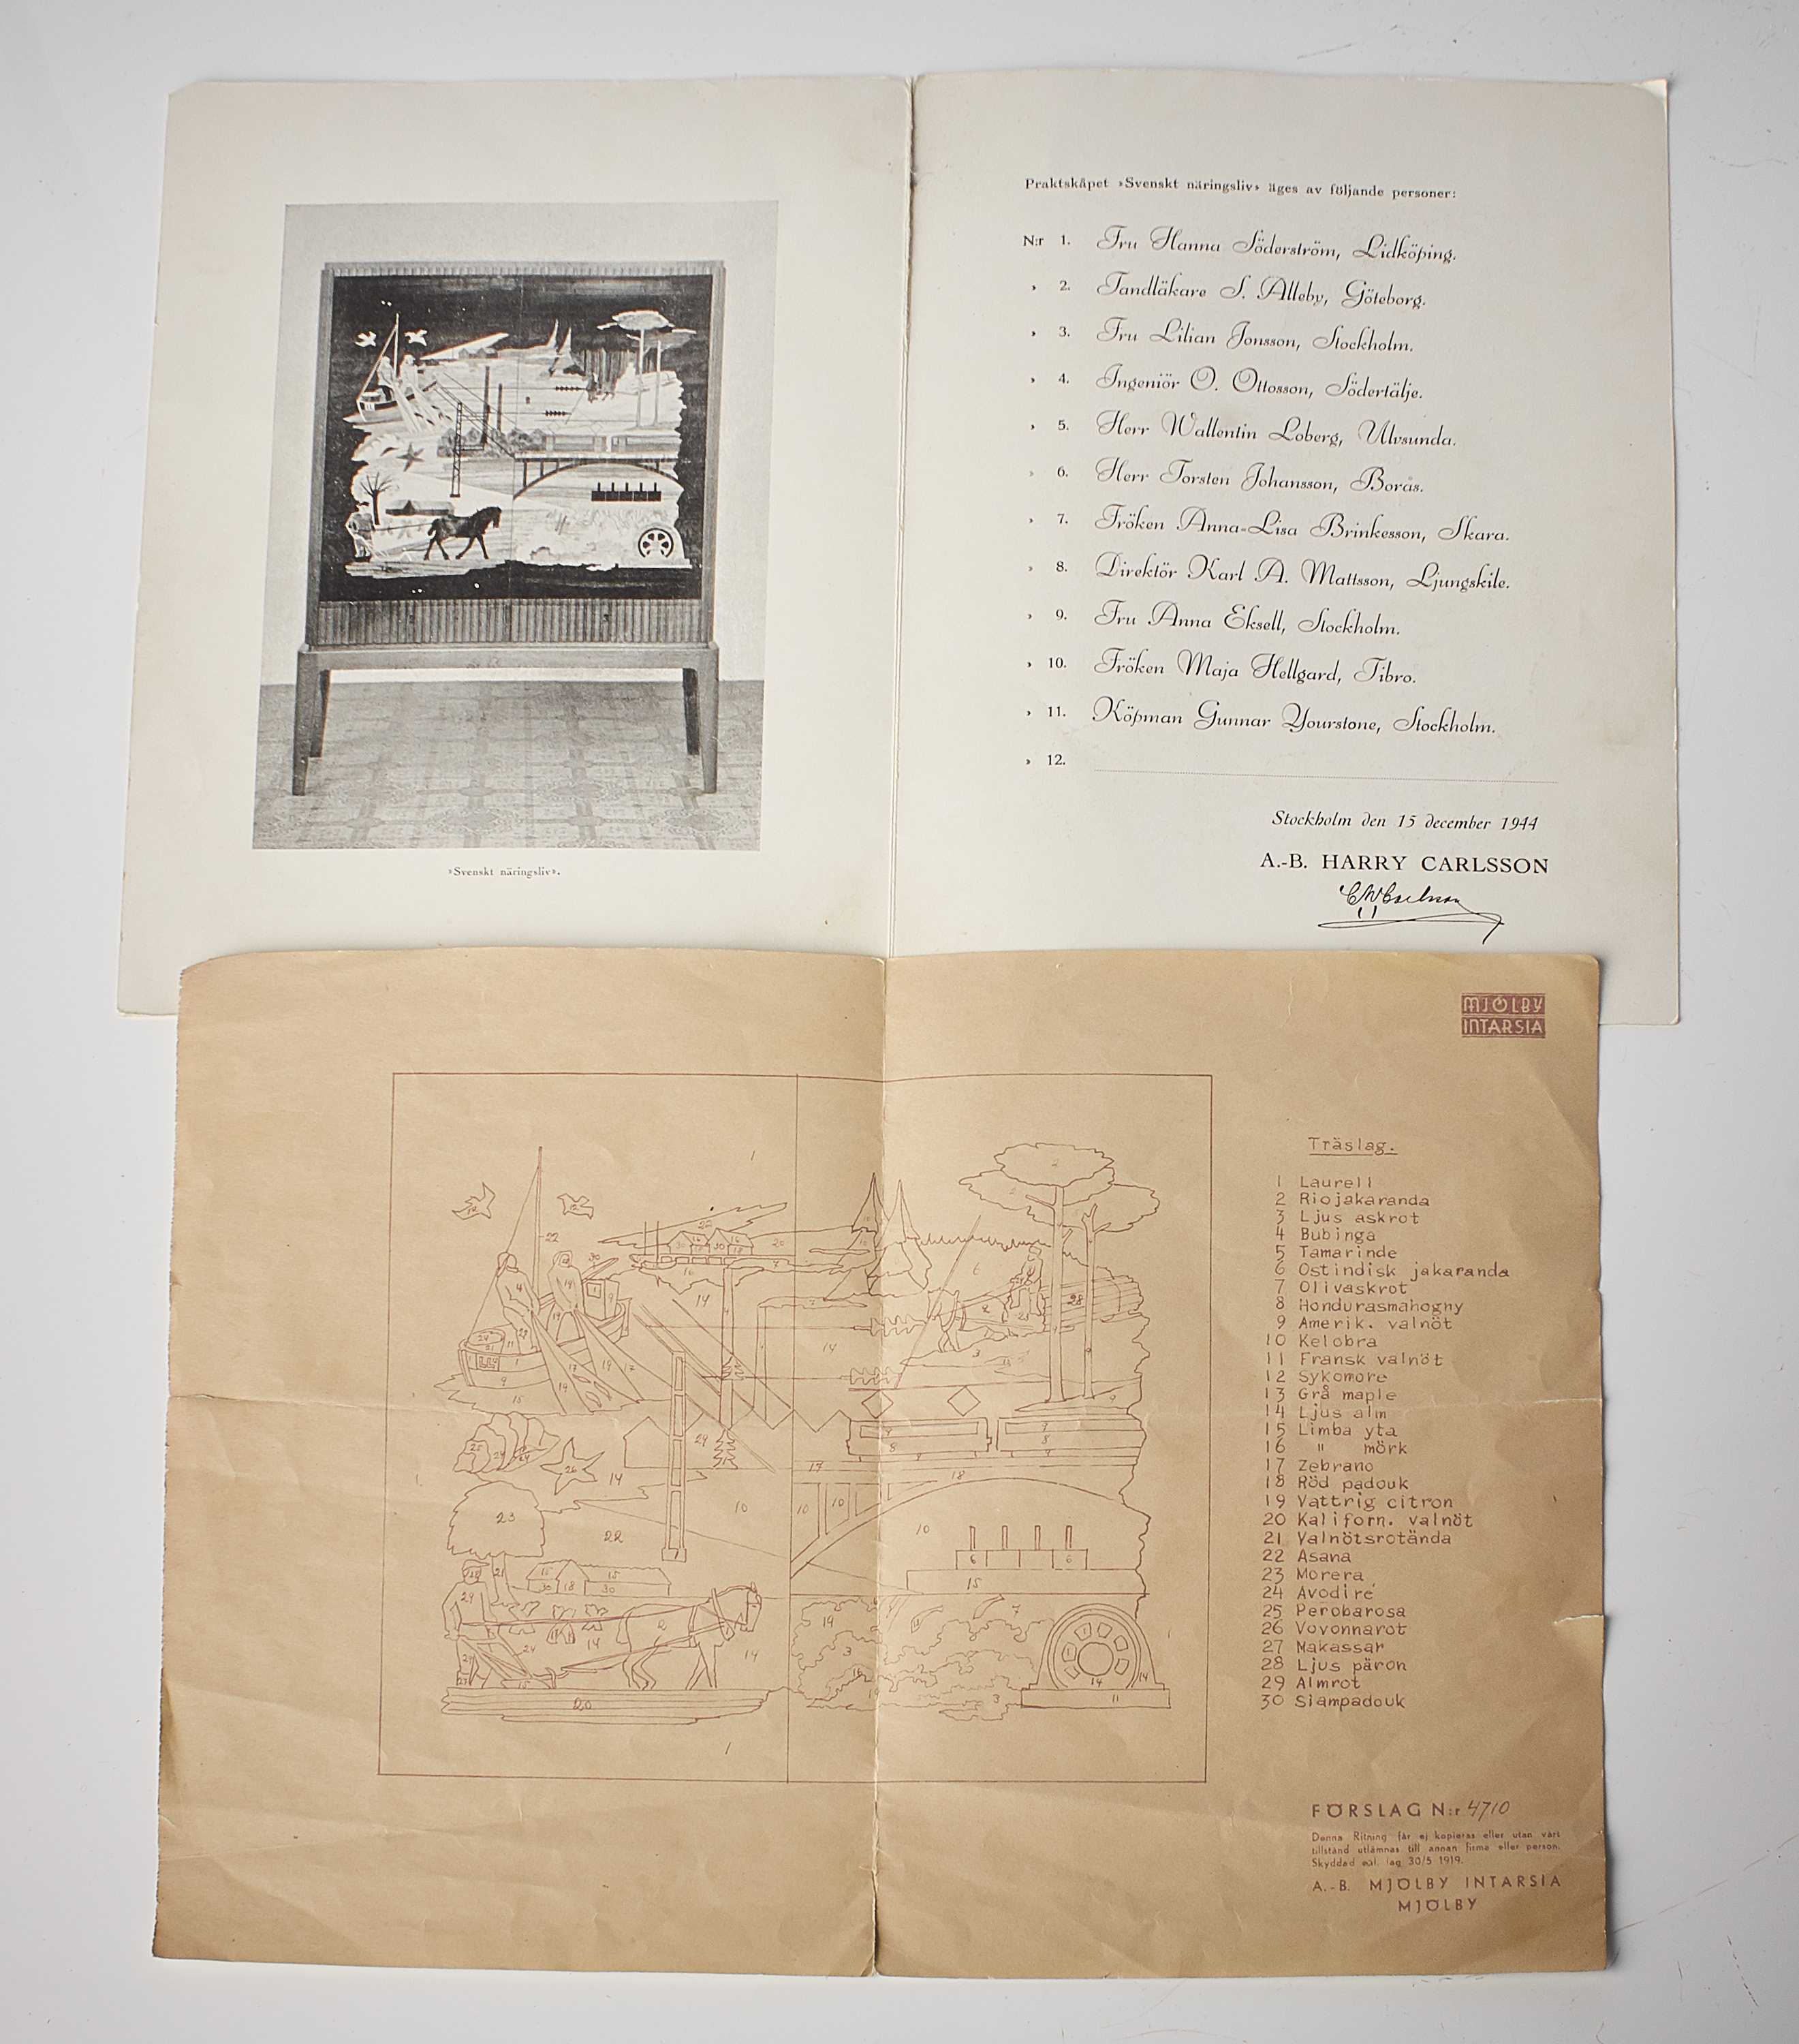 Praktskåpet »Svenskt näringsliv» äges av följande personer:
N:r 1. Fru Hanna Söderström, Lidköping.
» 2. Tandläkare S. Alleby, Göteborg.
» 3. Fru Lilian Jonsson, Stockholm.
» 4. Ingeniör O. Ottosson, Södertälje.
» 5. Herr Wallentin Loberg, Ulvsunda.
» 6. Herr Torsten Johansson, Borås.
» 7. Fröken Anna-Lisa Brinkesson, Skara.
» 8. Direktör Karl A. Mattsson, Ljungskile.
» 9. Fru Anna Eksell, Stockholm.
» 10. Fröken Maja Hellgard, Tibro.
» 11. Köpman Gunnar Yourstone, Stockholm.
» 12.
Stockholm den 15 december 1944
A.-B. HARRY CARLSSON
»Svenskt näringsliv».
MJÖLBY
INTARSIA
Träslag.
1 Laurell
2 Riojakaranda
3 Ljus askrot
4 Bubinga
5 Tamarinde
6 Ostindisk jakaranda
7 Olivaskrot
8 Hondurasmahogny
9 Amerik. valnöt
10 Kelobra
11 Fransk valnöt
12 Sykomore
13 Grå maple
14 Ljus alm
15 Limba yta
16 " mörk
17 Zebrano
18 Röd padouk
19 Vattrig citron
20 Kaliforn. valnöt
21 Valnötsrotända
22 Asana
23 Morera
24 Avodiré
25 Perobarosa
26 Vovonnarot
27 Makassar
28 Ljus päron
29 Almrot
30 Siampadouk
FÖRSLAG N:r 4710
Denna Ritning får ej kopieras eller utan vårt
tillstånd utlämnas till annan firma eller person.
Skyddad enl. lag 30/5 1919.
A.-B. MJÖLBY INTARSIA
MJÖLBY